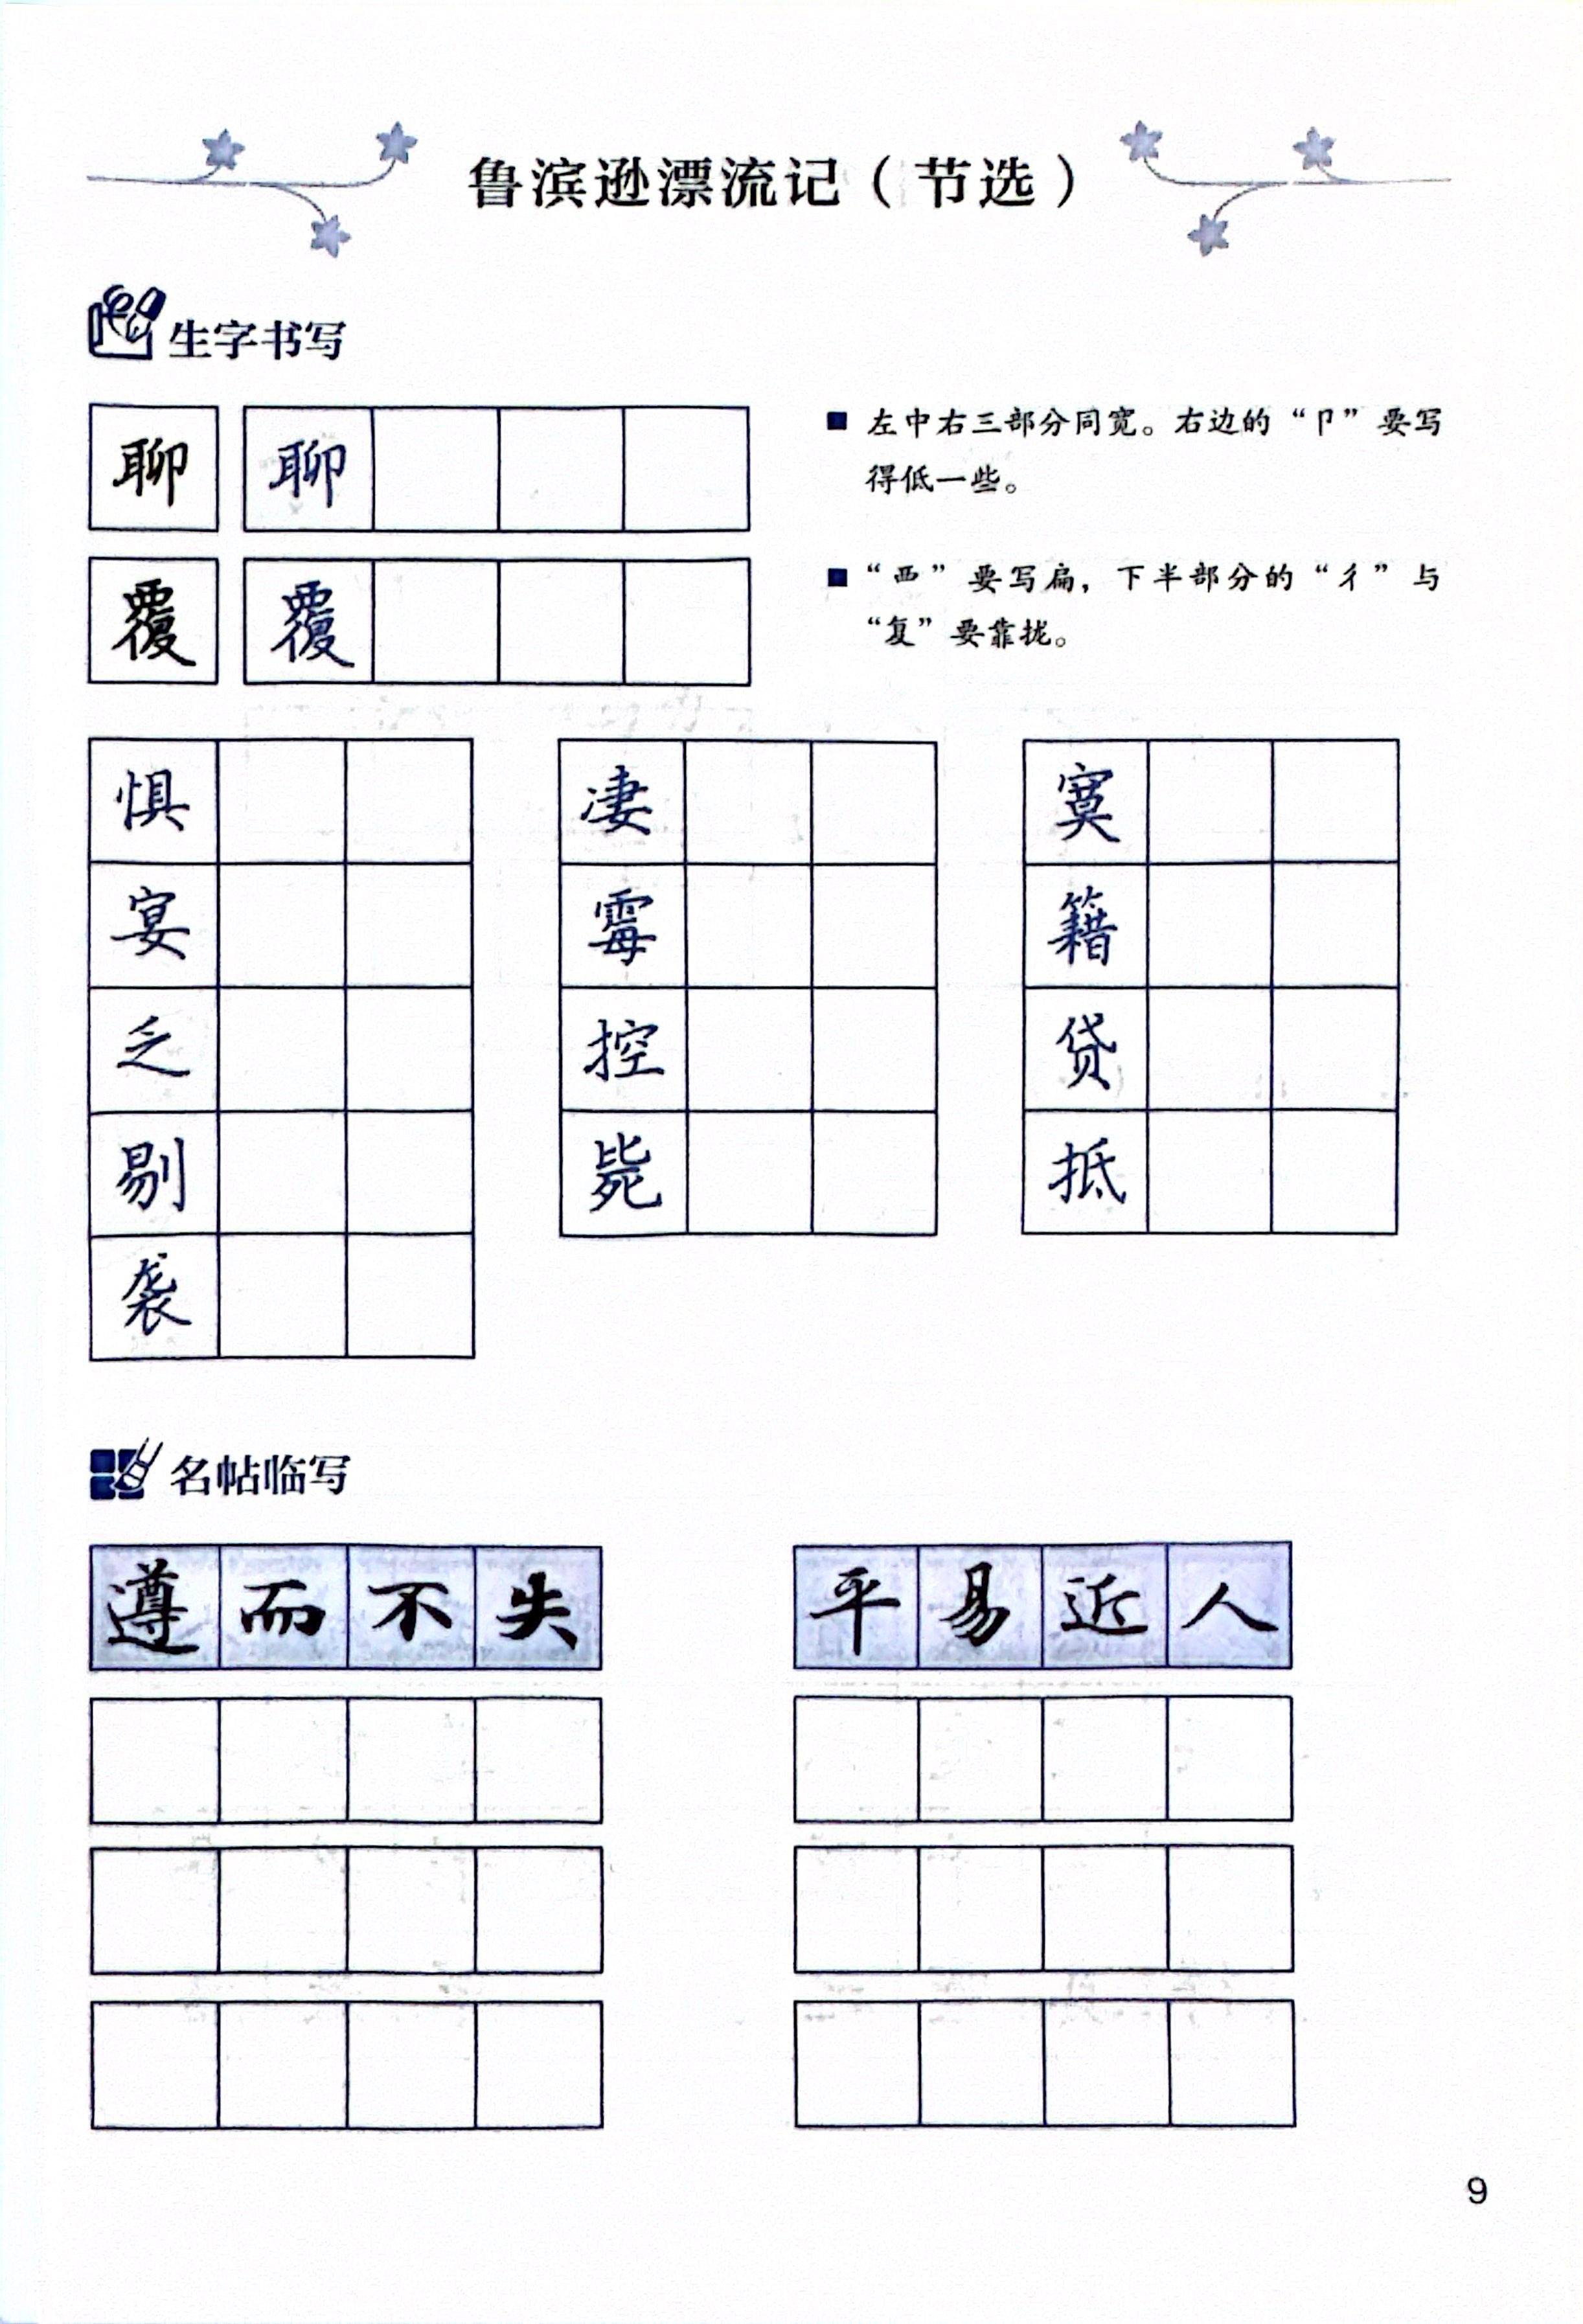 鲁滨逊漂流记（节选）
生字书写
聊 聊
左中右三部分同宽。右边的“卩”要写
得低一些。
覆 覆
“覀”要写扁，下半部分的“彳”与
“复”要靠拢。
惧 凄 寞
宴 霉 籍
乏 控 贷
剔 毙 抵
袭
名帖临写
遵而不失 平易近人
9